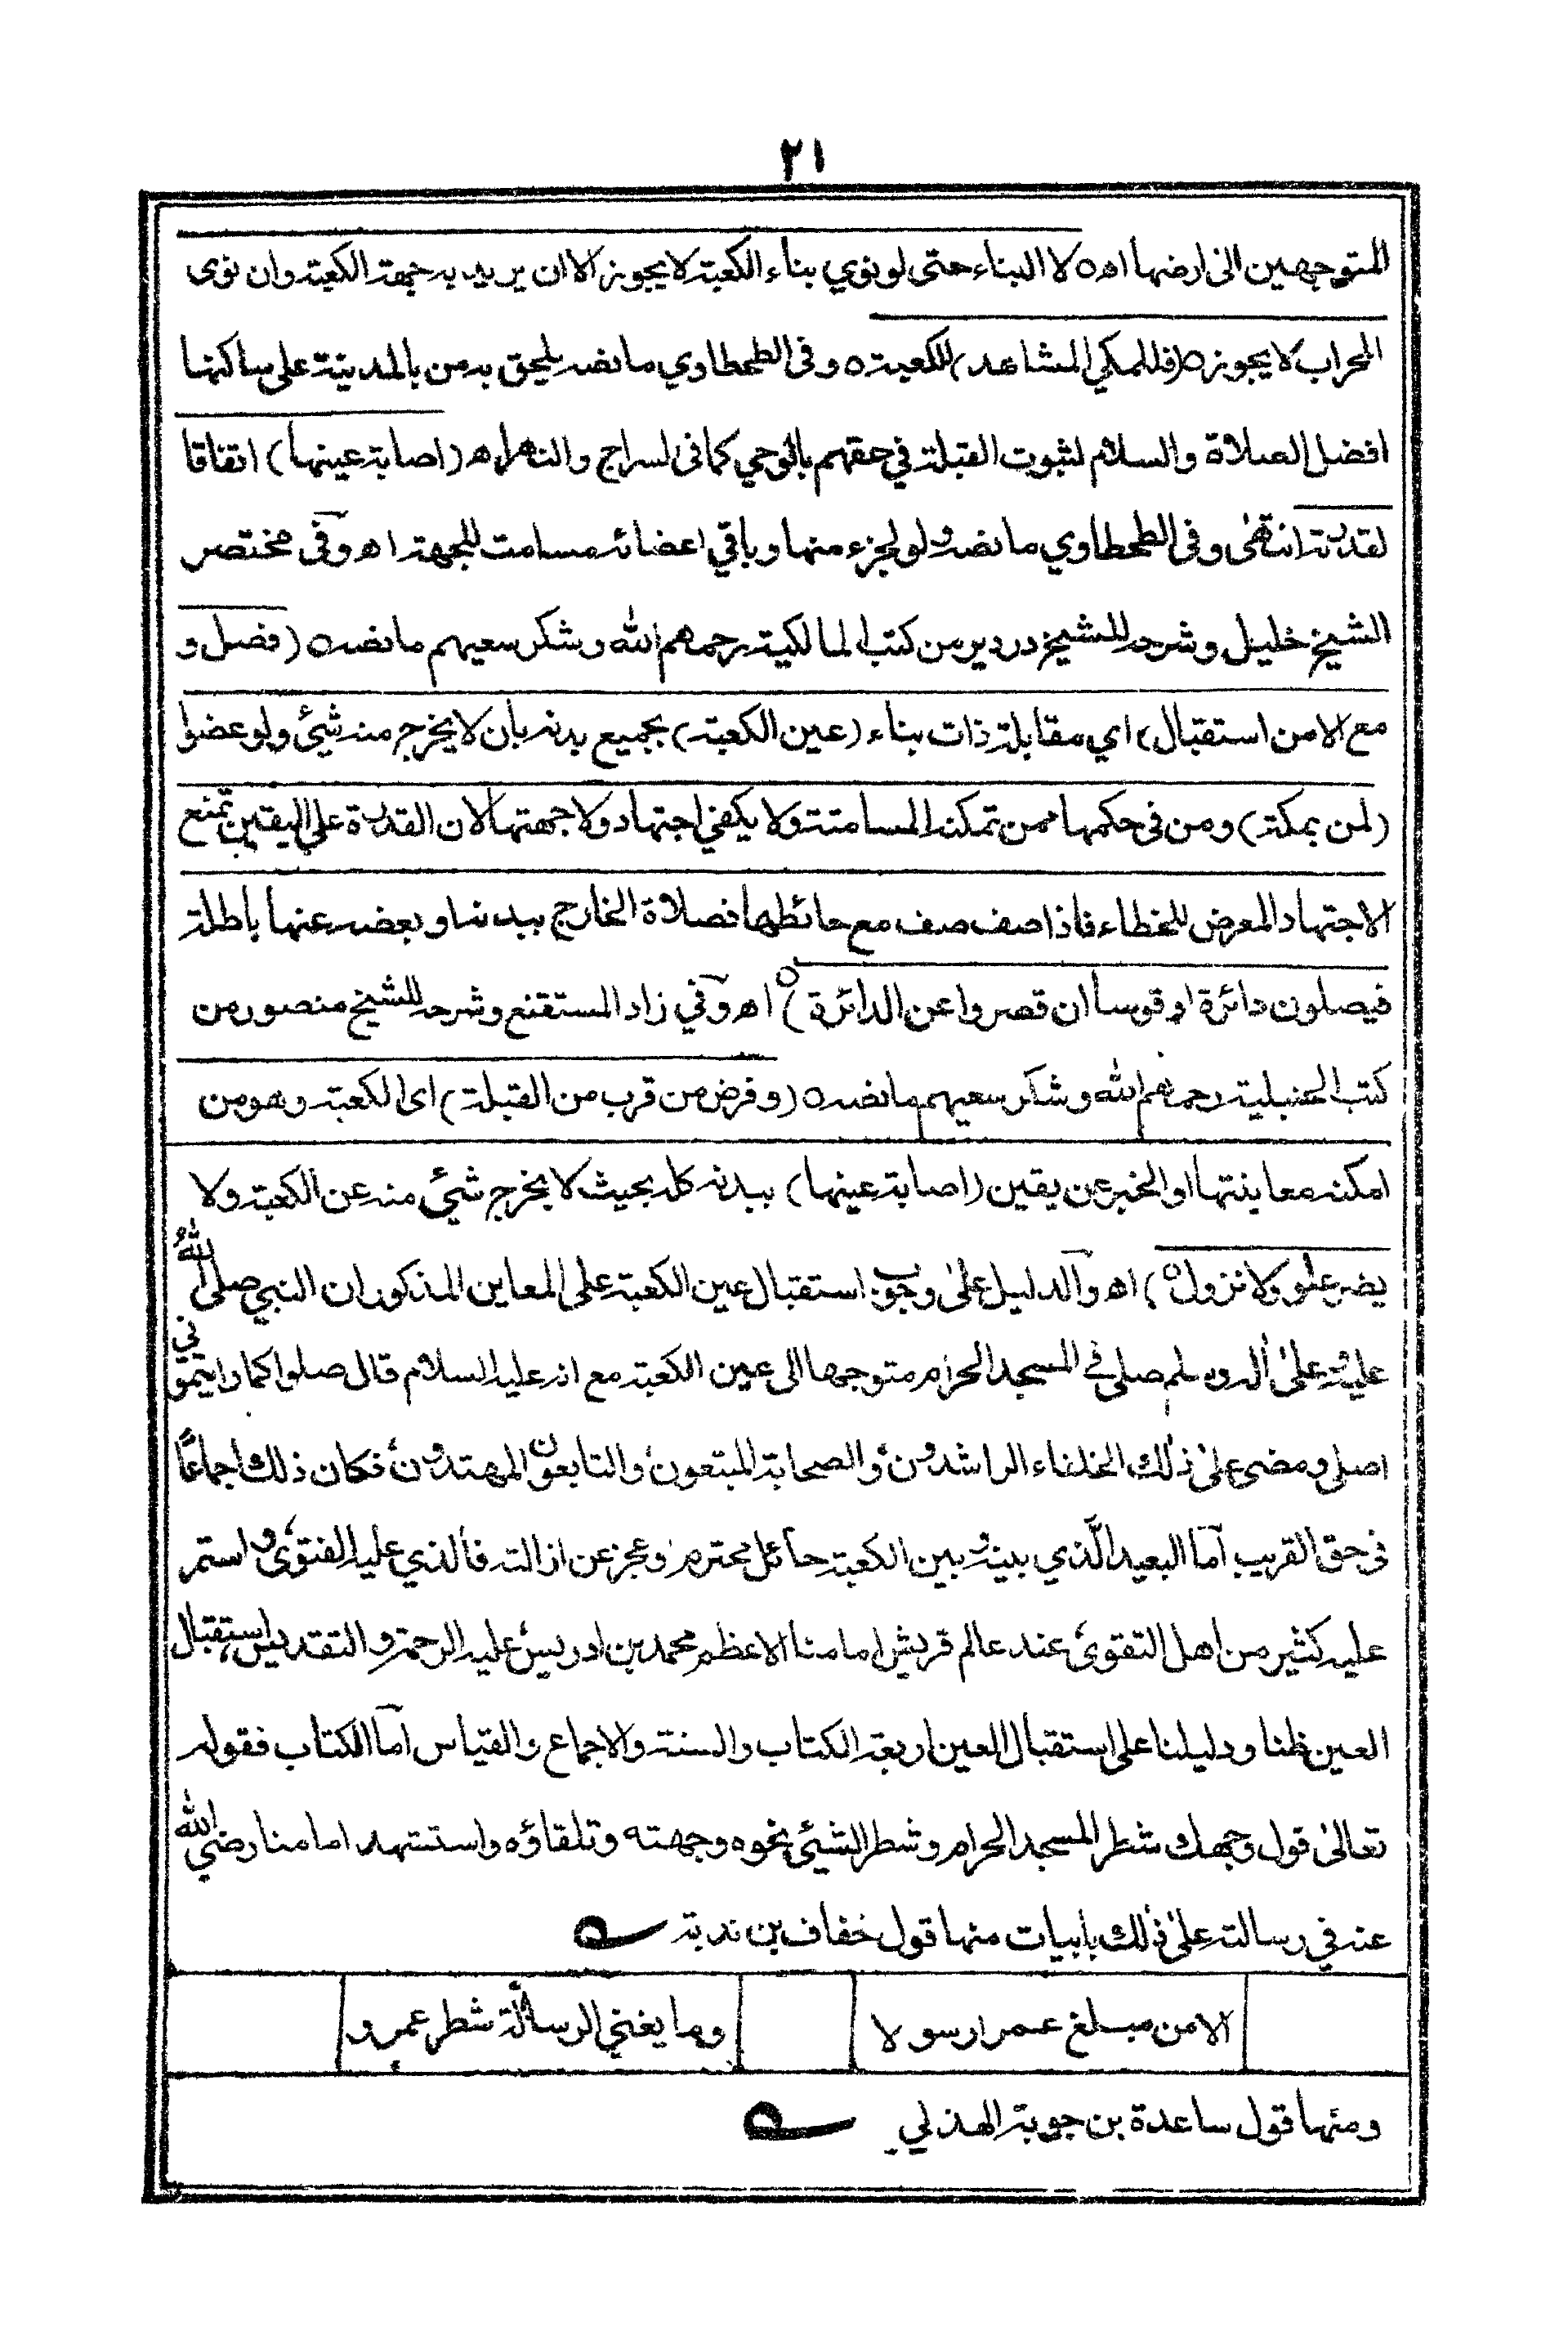 ٢١
المتوجهين الى ارضها اه ٥ لا البناء حتى لو نوي بناء الكعبة لا يجوز الا ان يريد به جهة الكعبة وان نوى
المحراب لا يجوز ٥ (فللمكي المشاهد) للكعبة ٥ وفى الطحطاوي ما نصه يلحق به من بالمدينة على ساكنها
افضل الصلاة والسلام لثبوت القبلة في حقهم بالوحي كما فى السراج والنهر اه (اصابة عينها) اتفاقا
لقدرته انتهى وفى الطحطاوي ما نصه ولو لجزء منها وباقي اعضائه مسامت للجهة اه وفى مختصر
الشيخ خليل وشرحه للشيخ دردير من كتب المالكية رحمهم الله وشكر سعيهم ما نصه ٥ (فصل و
مع الامن استقبال) اي مقابلة ذات بناء (عين الكعبة) بجميع بدنه بان لا يخرج منه شيئ ولو عضوا
(لمن بمكة) ومن فى حكمها ممن تمكنه المسامتة ولا يكفي اجتهاد ولا جهتها لان القدرة على اليقين تمنع
الاجتهاد المعرض للخطاء فاذا صف صف مع حائطها فصلاة الخارج ببدنه او بعضه عنها باطلة
فيصلون دائرة او قوسا ان قصروا عن الدائرة ٥) اه وفي زاد المستقنع وشرحه للشيخ منصور من
كتب الحنبلية رحمهم الله وشكر سعيهم ما نصه ٥ (وفرض من قرب من القبلة) اى الكعبة وهو من
امكنه معاينتها او الخبر عن يقين (اصابة عينها) ببدنه كله بحيث لا يخرج شيئ منه عن الكعبة ولا
يضر علو ولا نزول ٥) اه والدليل على وجوب استقبال عين الكعبة على المعاين المذكور ان النبي صلى الله
عليه وعلى آله وسلم صلى في المسجد الحرام متوجها الى عين الكعبة مع انه عليه السلام قال صلوا كما رايتموني
اصلي ومضى على ذلك الخلفاء الراشدون والصحابة المتبعون والتابعون المهتدون فكان ذلك اجماعا
فى حق القريب اما البعيد الذي بينه وبين الكعبة حائل محترم وعجز عن ازالته فالذي عليه الفتوى واستمر
عليه كثير من اهل التقوى عند عالم قريش امامنا الاعظم محمد بن ادريس عليه الرحمة والتقديس استقبال
العين ظنا ودليلنا على استقبال العين اربعة الكتاب والسنة والاجماع والقياس اما الكتاب فقوله
تعالى فول وجهك شطر المسجد الحرام وشطر الشيئ نحوه وجهته وتلقاؤه واستشهد امامنا رضي الله
عنه في رسالته على ذلك بابيات منها قول خفاف بن ندبة
الا من مبلغ عمرا رسولا وما يغني الرسالة شطر عمرو
ومنها قول ساعدة بن جوية الهذلي